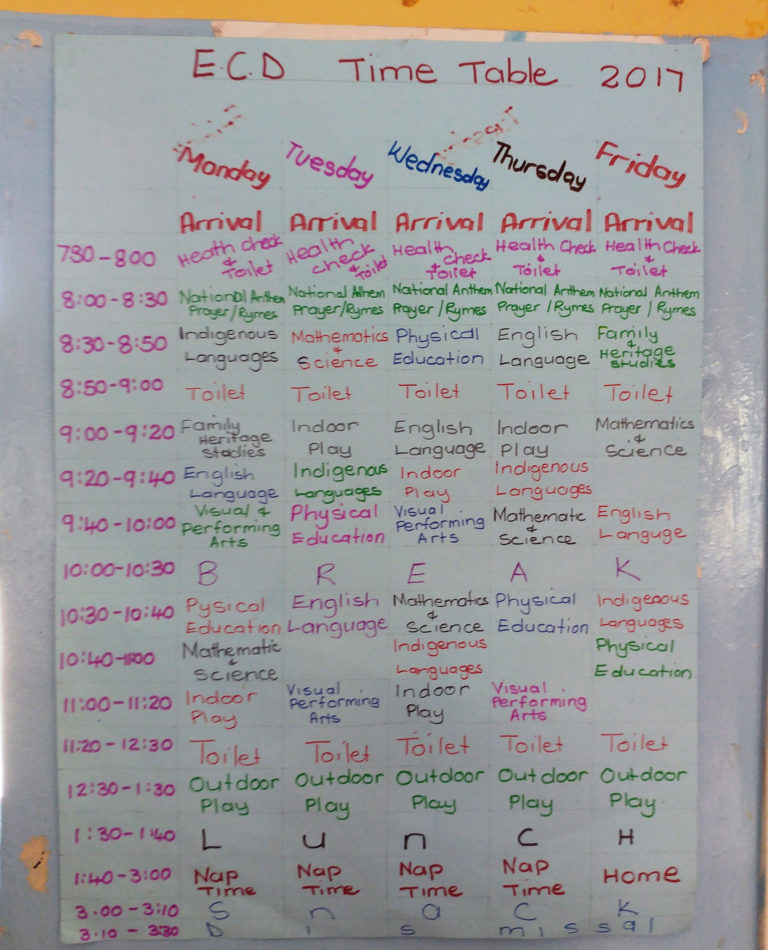 E.C.D Time Table 2017
Monday Tuesday Wednesday Thursday Friday
Arrival Arrival Arrival Arrival Arrival
730-800 Heath check & Toilet Health check & Toilet Health check & Toilet Health Check & Toilet Health Check & Toilet
8:00-8:30 National Anthem Prayer/Rymes National Athem Prayer/Rymes National Anthem Prayer/Rymes National Anthem Prayer/Rymes National Anthem Prayer/Rymes
8:30-8:50 Indigenous Languages Mathematics & Science Physical Education English Language Family & Heritage Studies
8:50-9:00 Toilet Toilet Toilet Toilet Toilet
9:00-9:20 Family Heritage Studies Indoor Play English Language Indoor Play Mathematics & Science
9:20-9:40 English Language Indigenous Languages Indoor Play Indigenous Languages
9:40-10:00 Visual & Performing Arts Physical Education Visual Performing Arts Mathematic & Science English Languge
10:00-10:30 B R E A K
10:30-10:40 Pysical Education English Language Mathematics & Science Physical Education Indigenous Languages
10:40-11:00 Mathematic & Science Indigenous Languages Physical Education
11:00-11:20 Indoor Play Visual Performing Arts Indoor Play Visual Performing Arts
11:20-12:30 Toilet Toilet Toilet Toilet Toilet
12:30-1:30 Outdoor Play Outdoor Play Outdoor Play Outdoor Play Outdoor Play
1:30-1:40 L u n C H
1:40-3:00 Nap Time Nap Time Nap Time Nap Time Home
3.00-3:10 S n a C K
3.10-3:30 D i s m i s s a l